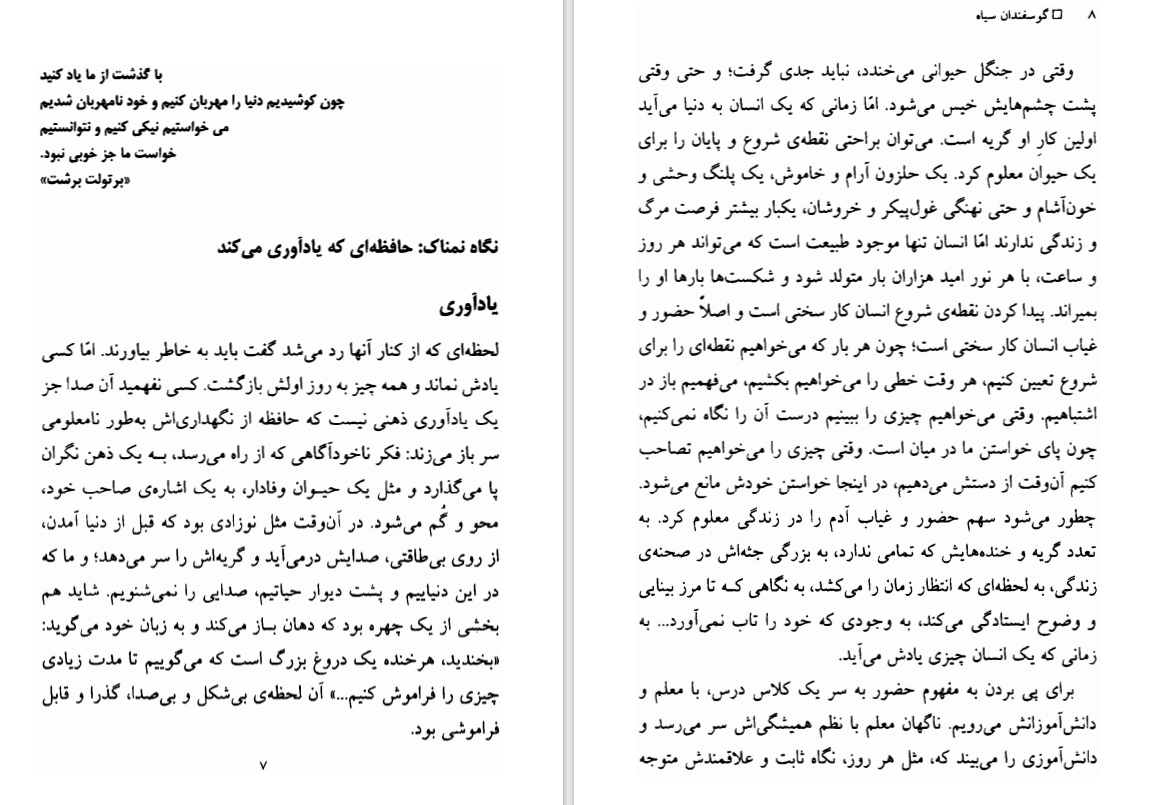 با گذشت از ما یاد کنید
چون کوشیدیم دنیا را مهربان کنیم و خود نامهربان شدیم
می خواستیم نیکی کنیم و نتوانستیم
خواست ما جز خوبی نبود.
«برتولت برشت»
نگاه نمناک: حافظه‌ای که یادآوری می‌کند
یادآوری
لحظه‌ای که از کنار آنها رد می‌شد گفت باید به خاطر بیاورند. امّا کسی
یادش نماند و همه چیز به روز اولش بازگشت. کسی نفهمید آن صدا جز
یک یادآوری ذهنی نیست که حافظه از نگهداری‌اش به‌طور نامعلومی
سر باز می‌زند: فکر ناخودآگاهی که از راه می‌رسد، به یک ذهن نگران
پا می‌گذارد و مثل یک حیوان وفادار، به یک اشاره‌ی صاحب خود،
محو و گُم می‌شود. در آن‌وقت مثل نوزادی بود که قبل از دنیا آمدن،
از روی بی‌طاقتی، صدایش درمی‌آید و گریه‌اش را سر می‌دهد؛ و ما که
در این دنیاییم و پشت دیوار حیاتیم، صدایی را نمی‌شنویم. شاید هم
بخشی از یک چهره بود که دهان باز می‌کند و به زبان خود می‌گوید:
«بخندید، هرخنده یک دروغ بزرگ است که می‌گوییم تا مدت زیادی
چیزی را فراموش کنیم...» آن لحظه‌ی بی‌شکل و بی‌صدا، گذرا و قابل
فراموشی بود.
۷
۸ □ گوسفندان سیاه
وقتی در جنگل حیوانی می‌خندد، نباید جدی گرفت؛ و حتی وقتی
پشت چشم‌هایش خیس می‌شود. امّا زمانی که یک انسان به دنیا می‌آید
اولین کارِ او گریه است. می‌توان براحتی نقطه‌ی شروع و پایان را برای
یک حیوان معلوم کرد. یک حلزون آرام و خاموش، یک پلنگ وحشی و
خون‌آشام و حتی نهنگی غول‌پیکر و خروشان، یکبار بیشتر فرصت مرگ
و زندگی ندارند امّا انسان تنها موجود طبیعت است که می‌تواند هر روز
و ساعت، با هر نور امید هزاران بار متولد شود و شکست‌ها بارها او را
بمیراند. پیدا کردن نقطه‌ی شروع انسان کار سختی است و اصلاً حضور و
غیاب انسان کار سختی است؛ چون هر بار که می‌خواهیم نقطه‌ای را برای
شروع تعیین کنیم، هر وقت خطی را می‌خواهیم بکشیم، می‌فهمیم باز در
اشتباهیم. وقتی می‌خواهیم چیزی را ببینیم درست آن را نگاه نمی‌کنیم،
چون پای خواستن ما در میان است. وقتی چیزی را می‌خواهیم تصاحب
کنیم آن‌وقت از دستش می‌دهیم، در اینجا خواستن خودش مانع می‌شود.
چطور می‌شود سهم حضور و غیاب آدم را در زندگی معلوم کرد. به
تعدد گریه و خنده‌هایش که تمامی ندارد، به بزرگی جثه‌اش در صحنه‌ی
زندگی، به لحظه‌ای که انتظار زمان را می‌کشد، به نگاهی که تا مرز بینایی
و وضوح ایستادگی می‌کند، به وجودی که خود را تاب نمی‌آورد... به
زمانی که یک انسان چیزی یادش می‌آید.
برای پی بردن به مفهوم حضور به سر یک کلاس درس، با معلم و
دانش‌آموزانش می‌رویم. ناگهان معلم با نظم همیشگی‌اش سر می‌رسد و
دانش‌آموزی را می‌بیند که، مثل هر روز، نگاه ثابت و علاقمندش متوجه